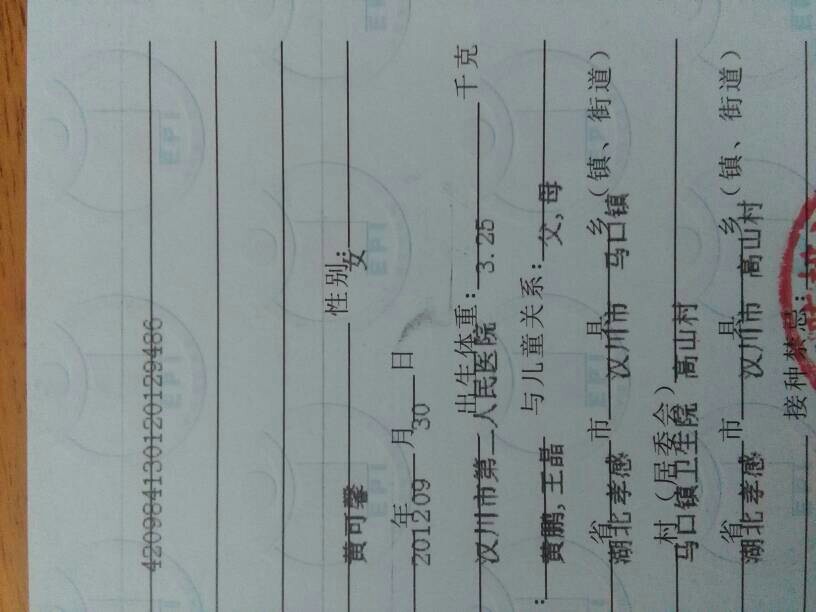 420984130120129486
性别：
黄可馨 女
年 月 日
201209 30
出生体重： 千克
汉川市第二人民医院 3.25
： 与儿童关系：
黄鹏,王晶 父,母
省 市 县 乡（镇、街道）
湖北孝感 汉川市 马口镇
村（居委会）
马口镇卫生院 高山村
省 市 县 乡（镇、街道）
湖北孝感 汉川市 高山村
接种禁忌：
EPI
EPI
EPI
EPI
EPI
EPI